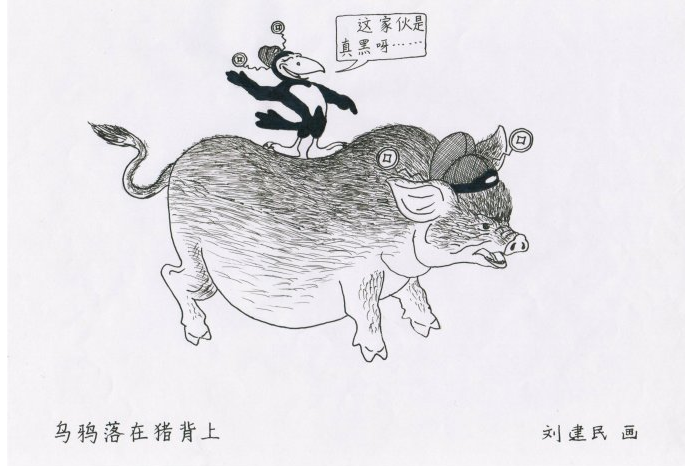 这家伙是
真黑呀……
乌鸦落在猪背上
刘建民 画